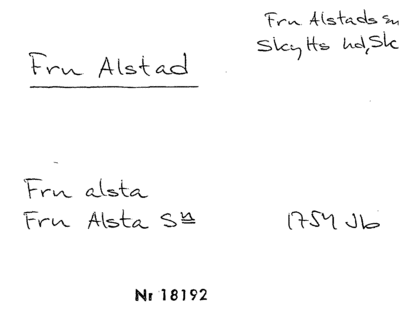 Fru Alstads sn
Skytts hd, Sk
Fru Alstad
Fru alsta
Fru Alsta Sn 1754 Jb
Nr 18192